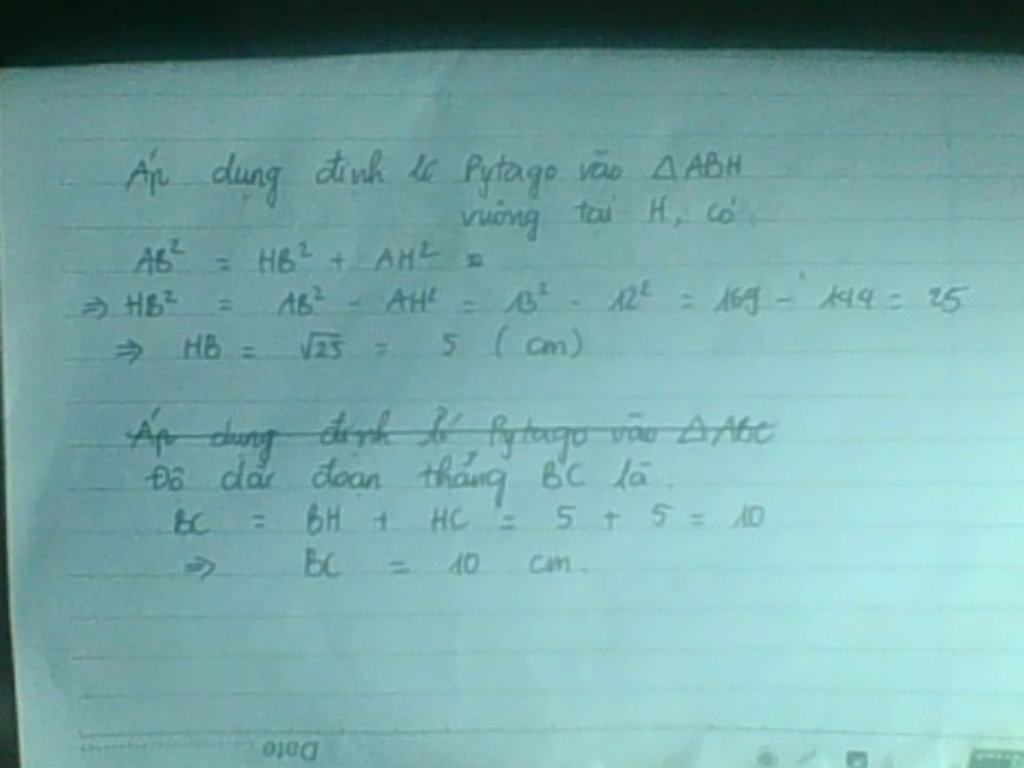 Áp dụng định lí Pytago vào △ABH
vuông tại H, có:
AB² = HB² + AH² =
⇒ HB² = AB² - AH² = 13² - 12² = 169 - 144 = 25
⇒ HB = √25 = 5 (cm)
Áp dụng định lí Pytago vào △ABC
Độ dài đoạn thẳng BC là.
BC = BH + HC = 5 + 5 = 10
⇒ BC = 10 cm.
Date